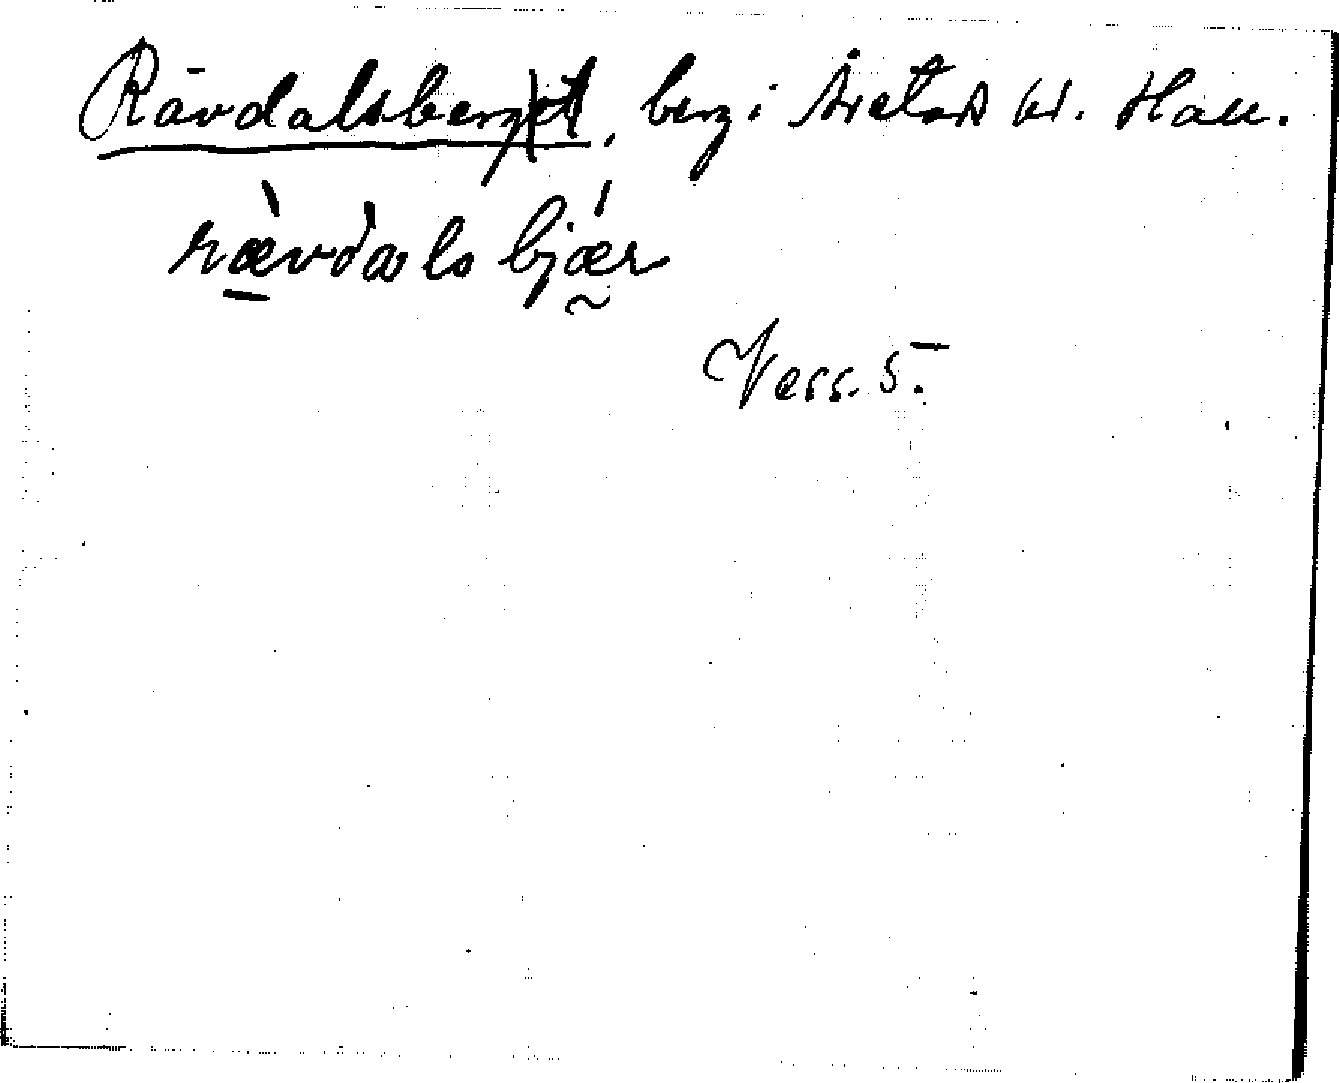 Rävdalsberget, berg i Årstads hd. Hall.
rævdals bjær
Vess. 5.